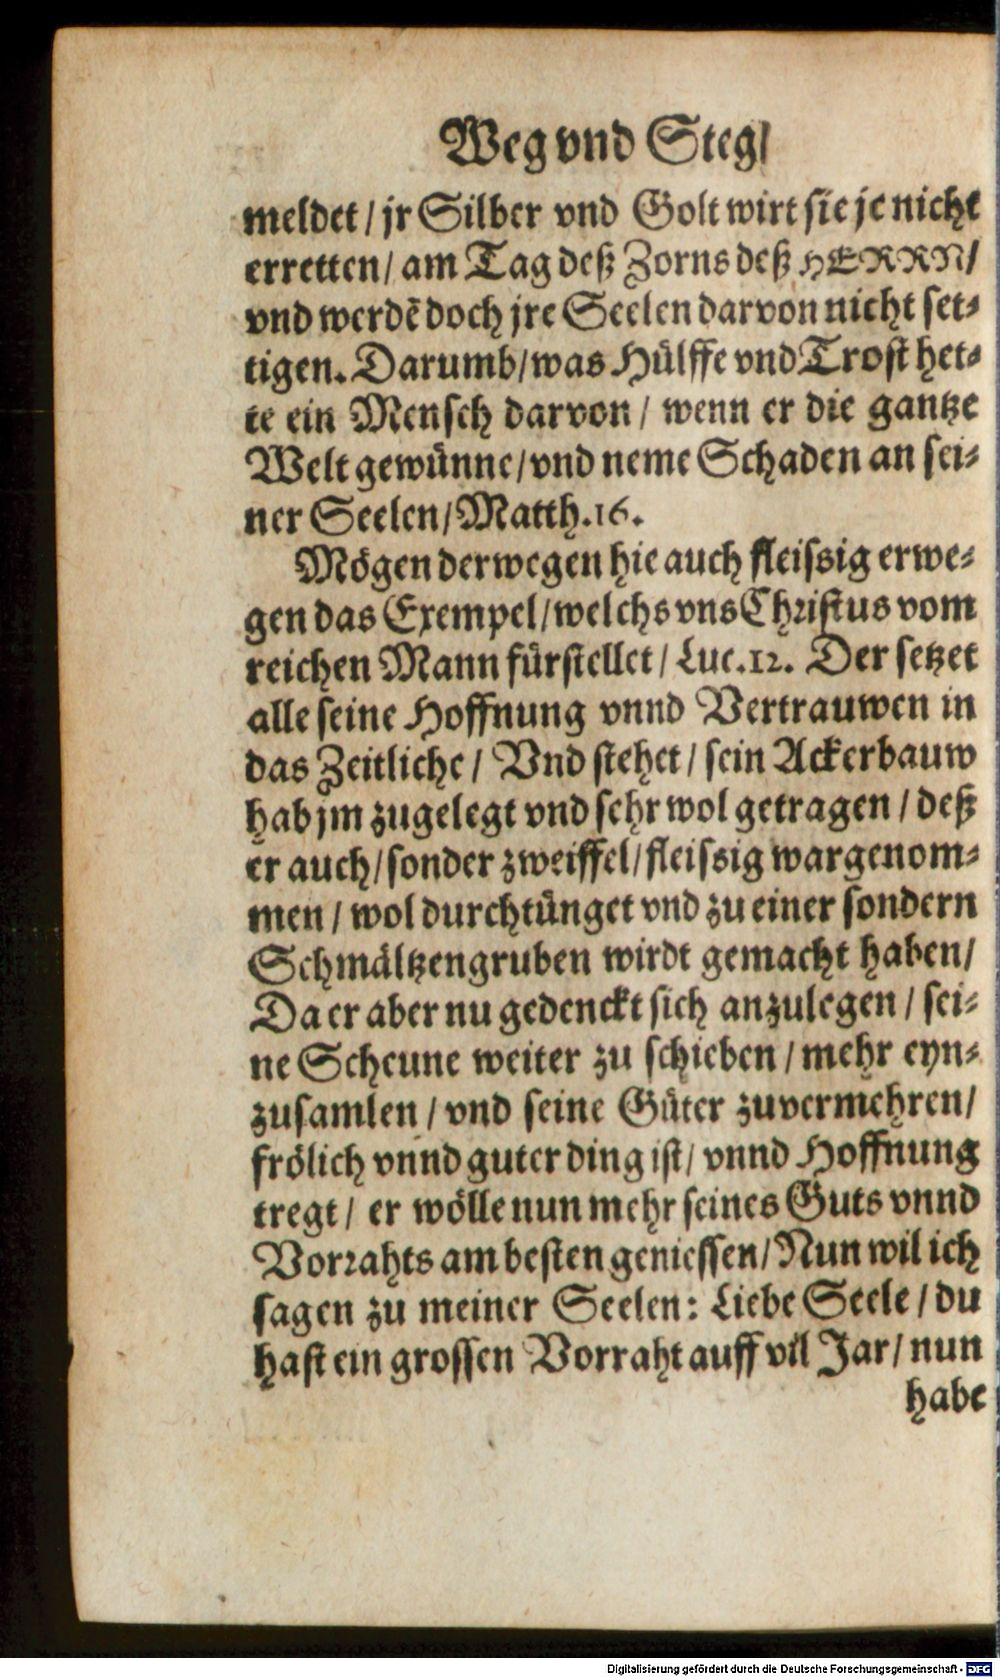 Weg vnd Steg/
meldet / jr Silber vnd Golt wirt sie je nicht
erretten / am Tag deß Zorns deß HERRN /
vnd werdẽ doch jre Seelen darvon nicht set-
tigen. Darumb / was Hülffe vnd Trost het-
te ein Mensch darvon / wenn er die gantze
Welt gewünne / vnd neme Schaden an sei-
ner Seelen / Matth. 16.
Mögen derwegen hie auch fleissig erwe-
gen das Exempel / welchs vns Christus vom
reichen Mann fürstellet / Luc. 12. Der setzet
alle seine Hoffnung vnnd Vertrauwen in
das Zeitliche / Vnd stehet / sein Ackerbauw
hab jm zugelegt vnd sehr wol getragen / deß
er auch / sonder zweiffel / fleissig wargenom-
men / wol durchtünget vnd zu einer sondern
Schmältzengruben wirdt gemacht haben /
Da er aber nu gedenckt sich anzulegen / sei-
ne Scheune weiter zu schieben / mehr eyn-
zusamlen / vnd seine Güter zuvermehren /
frölich vnnd guter ding ist / vnnd Hoffnung
tregt / er wölle nun mehr seines Guts vnnd
Vorrahts am besten geniessen / Nun wil ich
sagen zu meiner Seelen: Liebe Seele / du
hast ein grossen Vorraht auff vil Jar / nun
habe
Digitalisierung gefördert durch die Deutsche Forschungsgemeinschaft - DFG